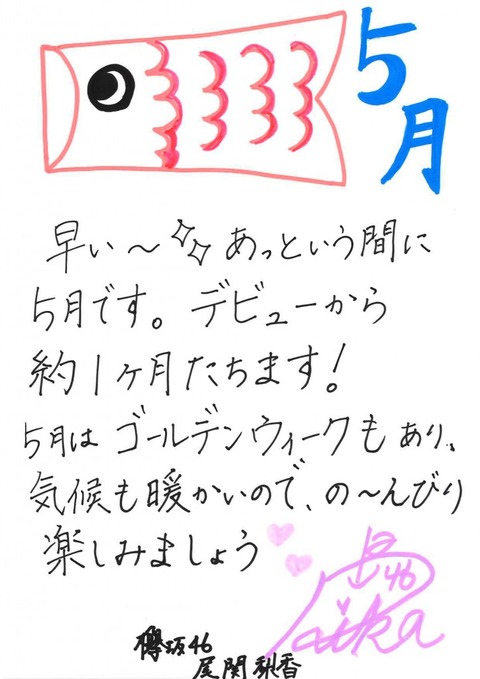 5月
早い〜あっという間に
5月です。デビューから
約1ヶ月たちます!
5月は ゴールデンウィークもあり、
気候も暖かいので、の〜んびり
楽しみましょう
欅坂46
尾関梨香